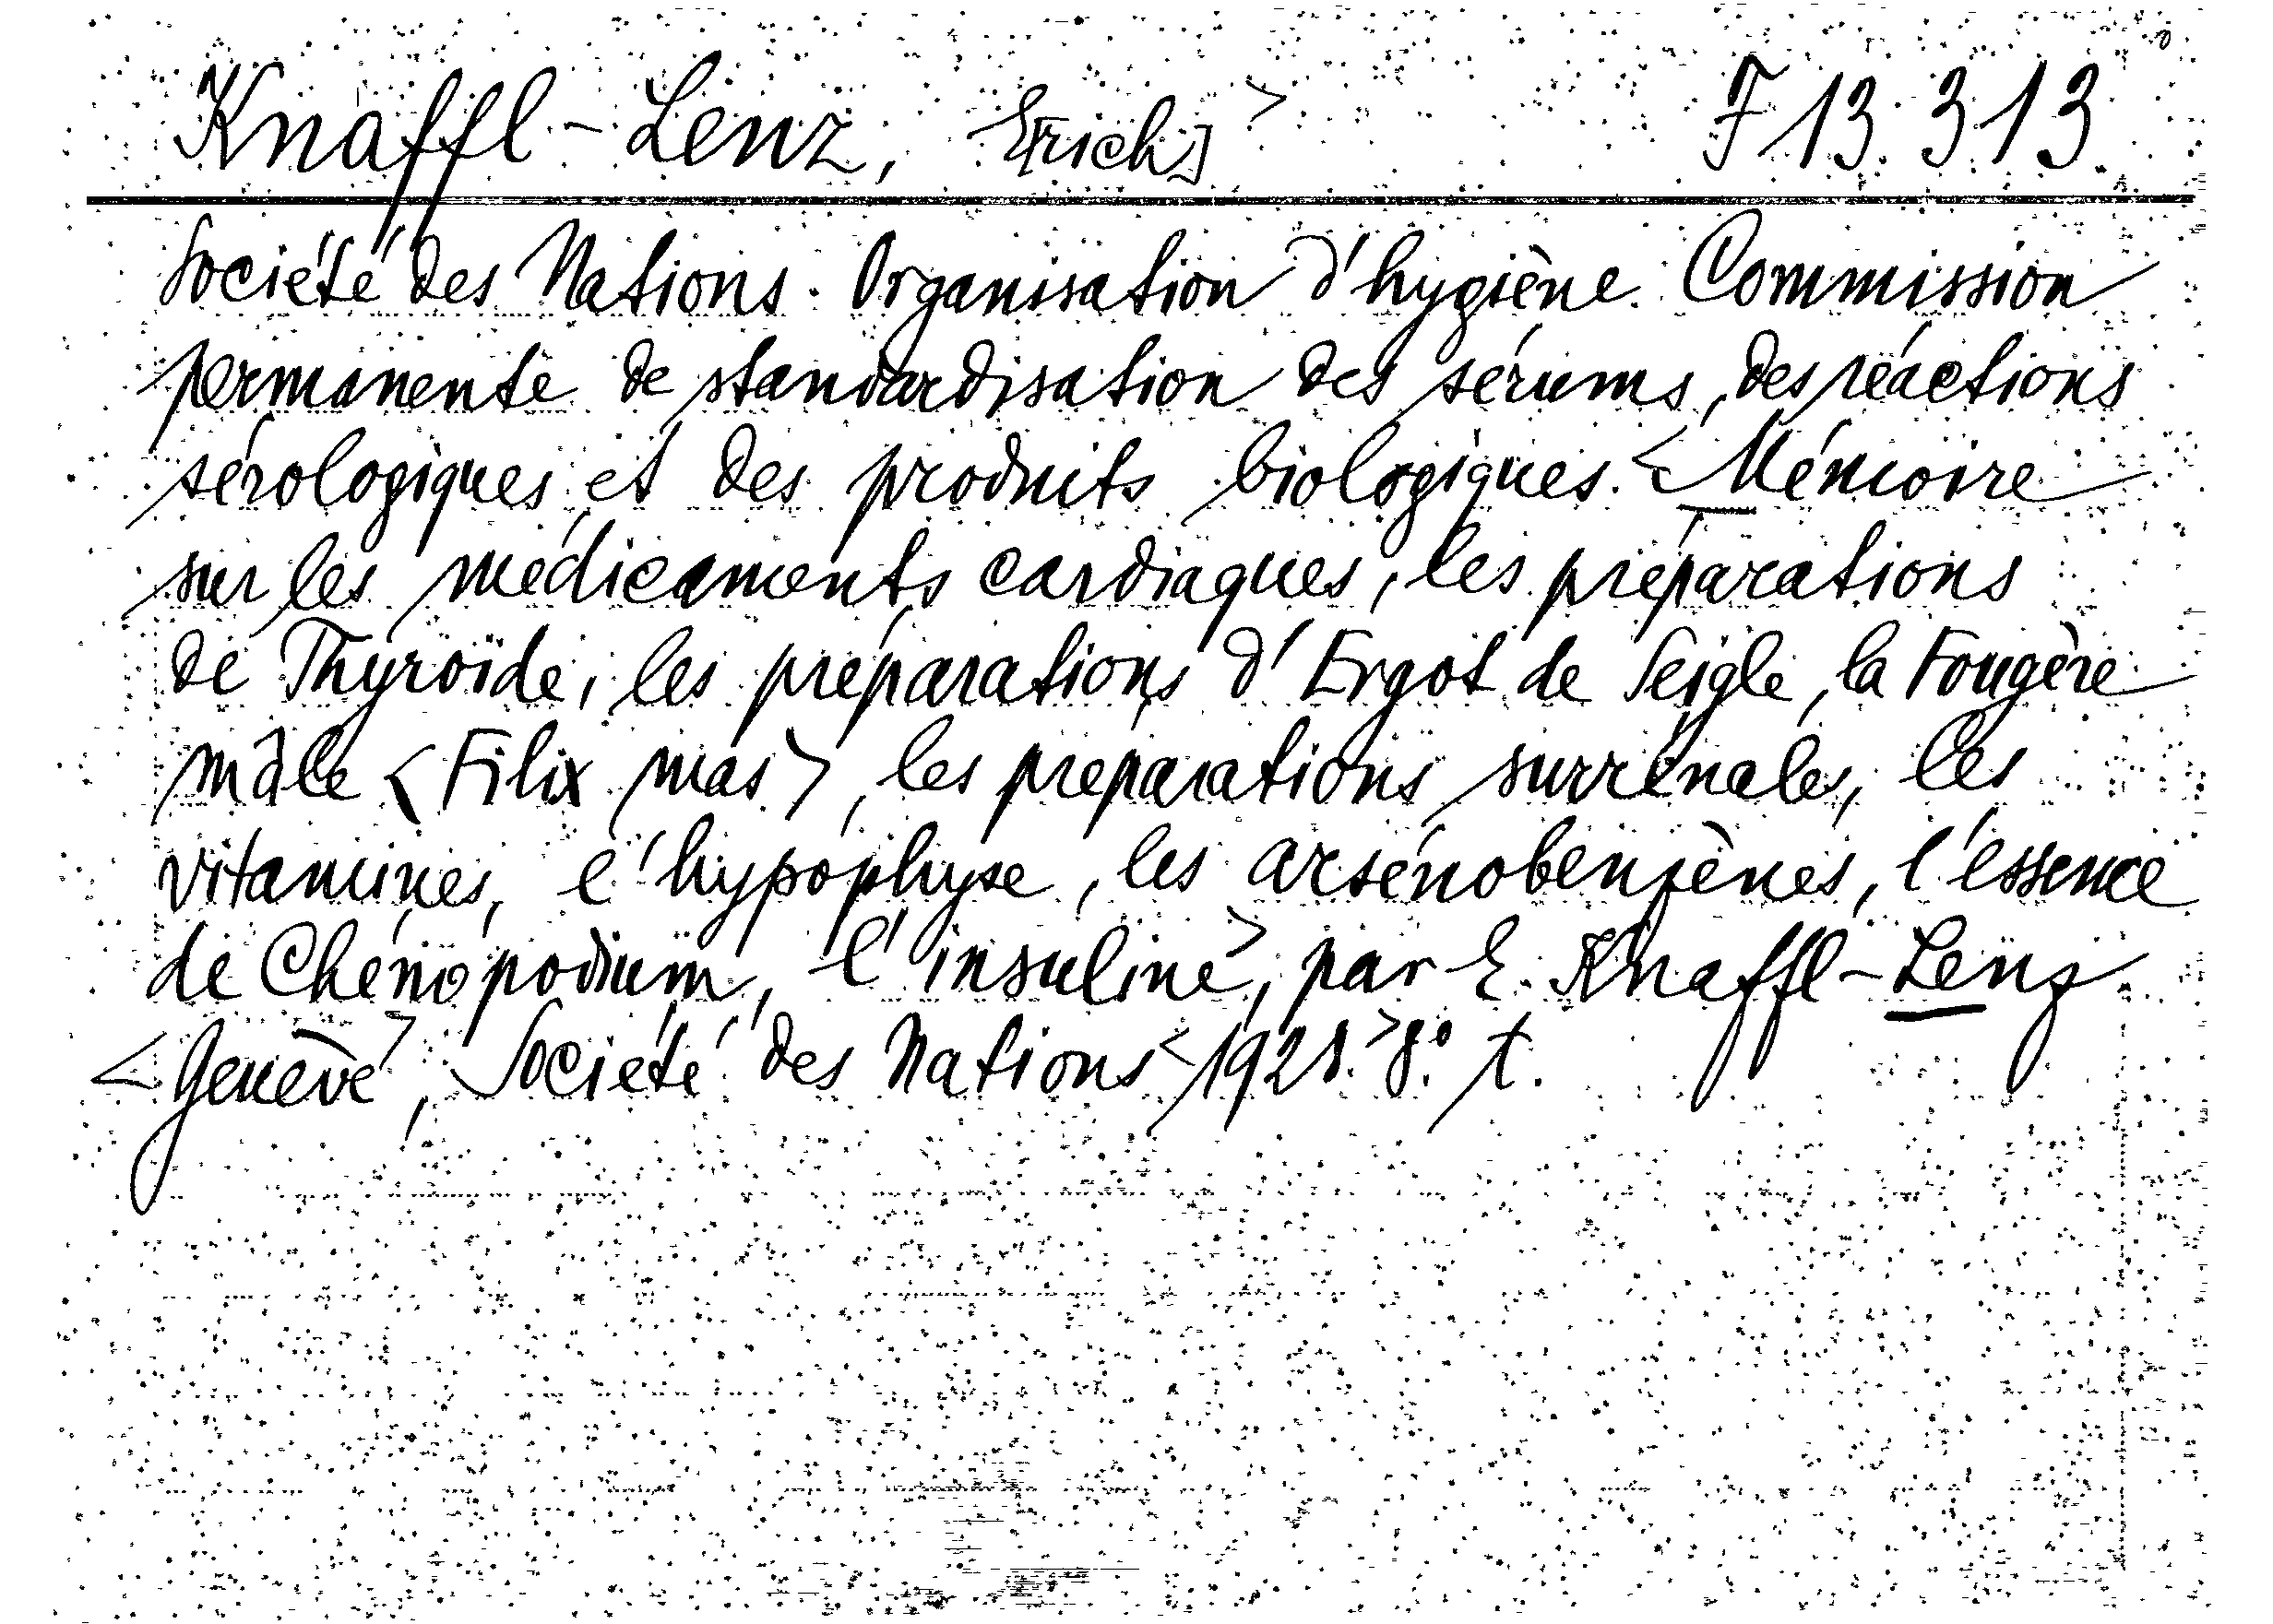 Knaffl-Lenz, E[rich]> F 13.313
Société des Nations. Organisation d'hygiène. Commission
permanente de standardisation des sérums, des réactions
sérologiques et des produits biologiques. <Mémoire
sur les médicaments cardiaques, les préparations
de Thyroïde, les préparations d'Ergot de Seigle, la Fougère
mâle <Filix mas>, les préparations surrénales, les
vitamines, l'hypophyse, les arsénobenzènes, l'essence
de Chenopodium, l'insuline>, par E. Knaffl-Lenz.
<Genève>, Société des Nations <1928.> 8°. t.